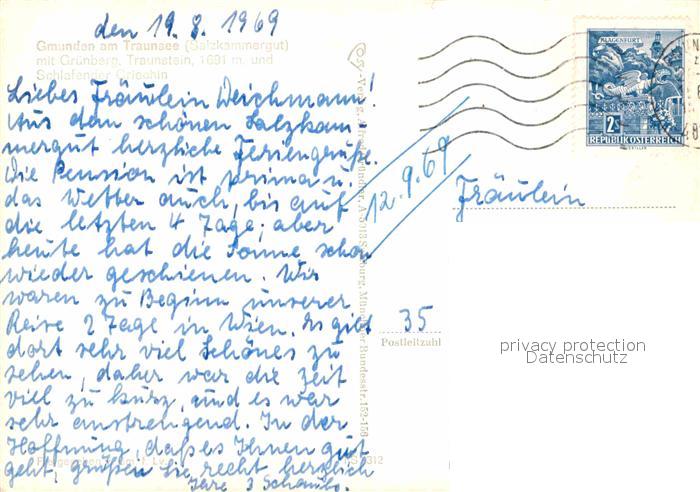 den 19. 8. 1969
Gmunden am Traunsee (Salzkammergut)
mit Grünberg, Traunstein, 1691 m. und
Schlafender Griechin
Liebes Fräulein Deichmann!
Aus dem schönen Salzkam
mergut herzliche Feriengrüße.
Die Pension ist prima u.
das Wetter auch, bis auf
die letzten 4 Tage; aber
heute hat die Sonne schon
wieder geschienen. Wir
waren zu Beginn unserer
Reise 2 Tage in Wien. Es gibt
dort sehr viel Schönes zu
sehen, daher war die Zeit
viel zu kurz, und es war
sehr anstrengend. In der
Hoffnung, daß es Ihnen gut
geht, grüßen Sie recht herzlich
Ihre 3
12.9.69
KLAGENFURT
2S
REPUBLIK ÖSTERREICH
Fräulein
35
Postleitzahl
privacy protection
Datenschutz